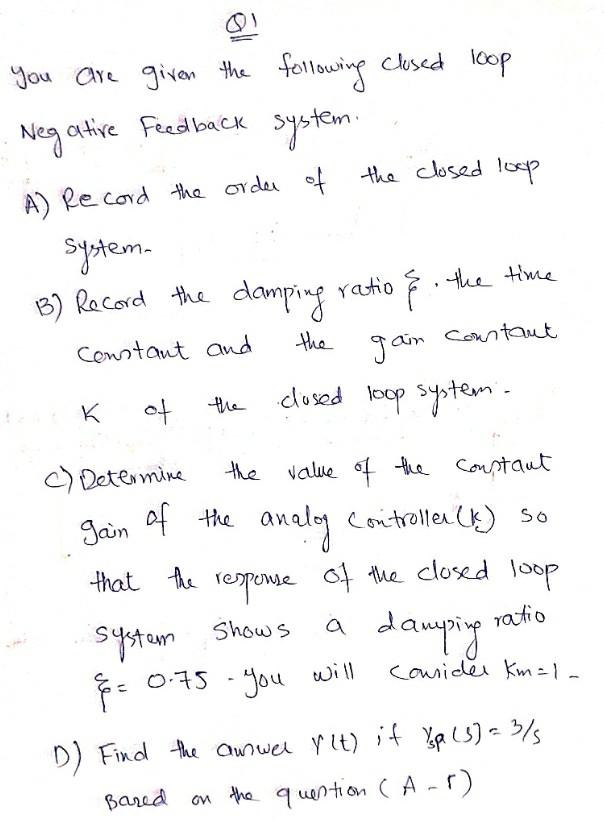 Q1
You are given the following closed loop
Negative Feedback system.
A) Record the order of the closed loop
system.
B) Record the damping ratio ξ, the time
constant and the gain constant
K of the closed loop system.
C) Determine the value of the constant
gain of the analog controller (K) so
that the response of the closed loop
system shows a damping ratio
ξ = 0.75 - you will consider Km = 1 -
D) Find the answer Y(t) if Ysp(s) = 3/s
Based on the question (A - r)